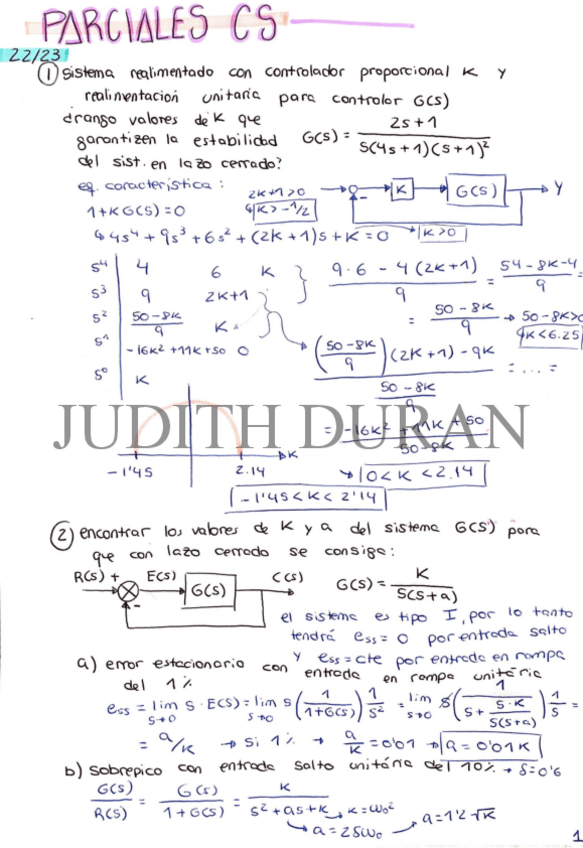 PARCIALES CS
22/23
① sistema realimentado con controlador proporcional K y
realimentación unitaria para controlar G(s)
¿rango valores de K que
garanticen la estabilidad
del sist. en lazo cerrado?
G(s) = 2s+1 / s(4s+1)(s+1)²
eq. característica:
1+KG(s)=0
2K+1>0
↳ K>-1/2
K
G(s)
Y
-
↳ 4s⁴ + 9s³ + 6s² + (2K+1)s + K = 0
K>0
s⁴ | 4 6 K
s³ | 9 2K+1
s² | 50-8K / 9 K
s¹ | -16K²+11K+50 0
s⁰ | K
9·6 - 4(2K+1) / 9 = 54-8K-4 / 9
= 50-8K / 9 → 50-8K>0
K<6.25
(50-8K / 9)(2K+1) - 9K / 50-8K / 9 = ... =
= -16K² + 11K + 50 / 50-8K
JUDITH DURAN
-1'45 2.14 K
→ 0<K<2.14
-1'45<K<2'14
② encontrar los valores de K y a del sistema G(s) para
que con lazo cerrado se consiga:
R(s) + E(s) G(s) C(s)
-
G(s) = K / s(s+a)
el sistema es tipo I, por lo tanto
tendrá ess = 0 por entrada salto
y ess = cte por entrada en rampa
a) error estacionario con entrada en rampa unitaria
del 1%
ess = lim s→0 s·E(s) = lim s→0 s(1 / 1+G(s)) 1/s² = lim s→0 s(1 / s + s·K / s(s+a)) 1/s =
= a/K → si 1% → a/K = 0'01 → a = 0'01K
b) sobrepico con entrada salto unitaria del 10% → δ=0'6
G(s) / R(s) = G(s) / 1+G(s) = K / s²+as+K → K=ω₀²
→ a = 2δω₀ → a=1'2√K
1